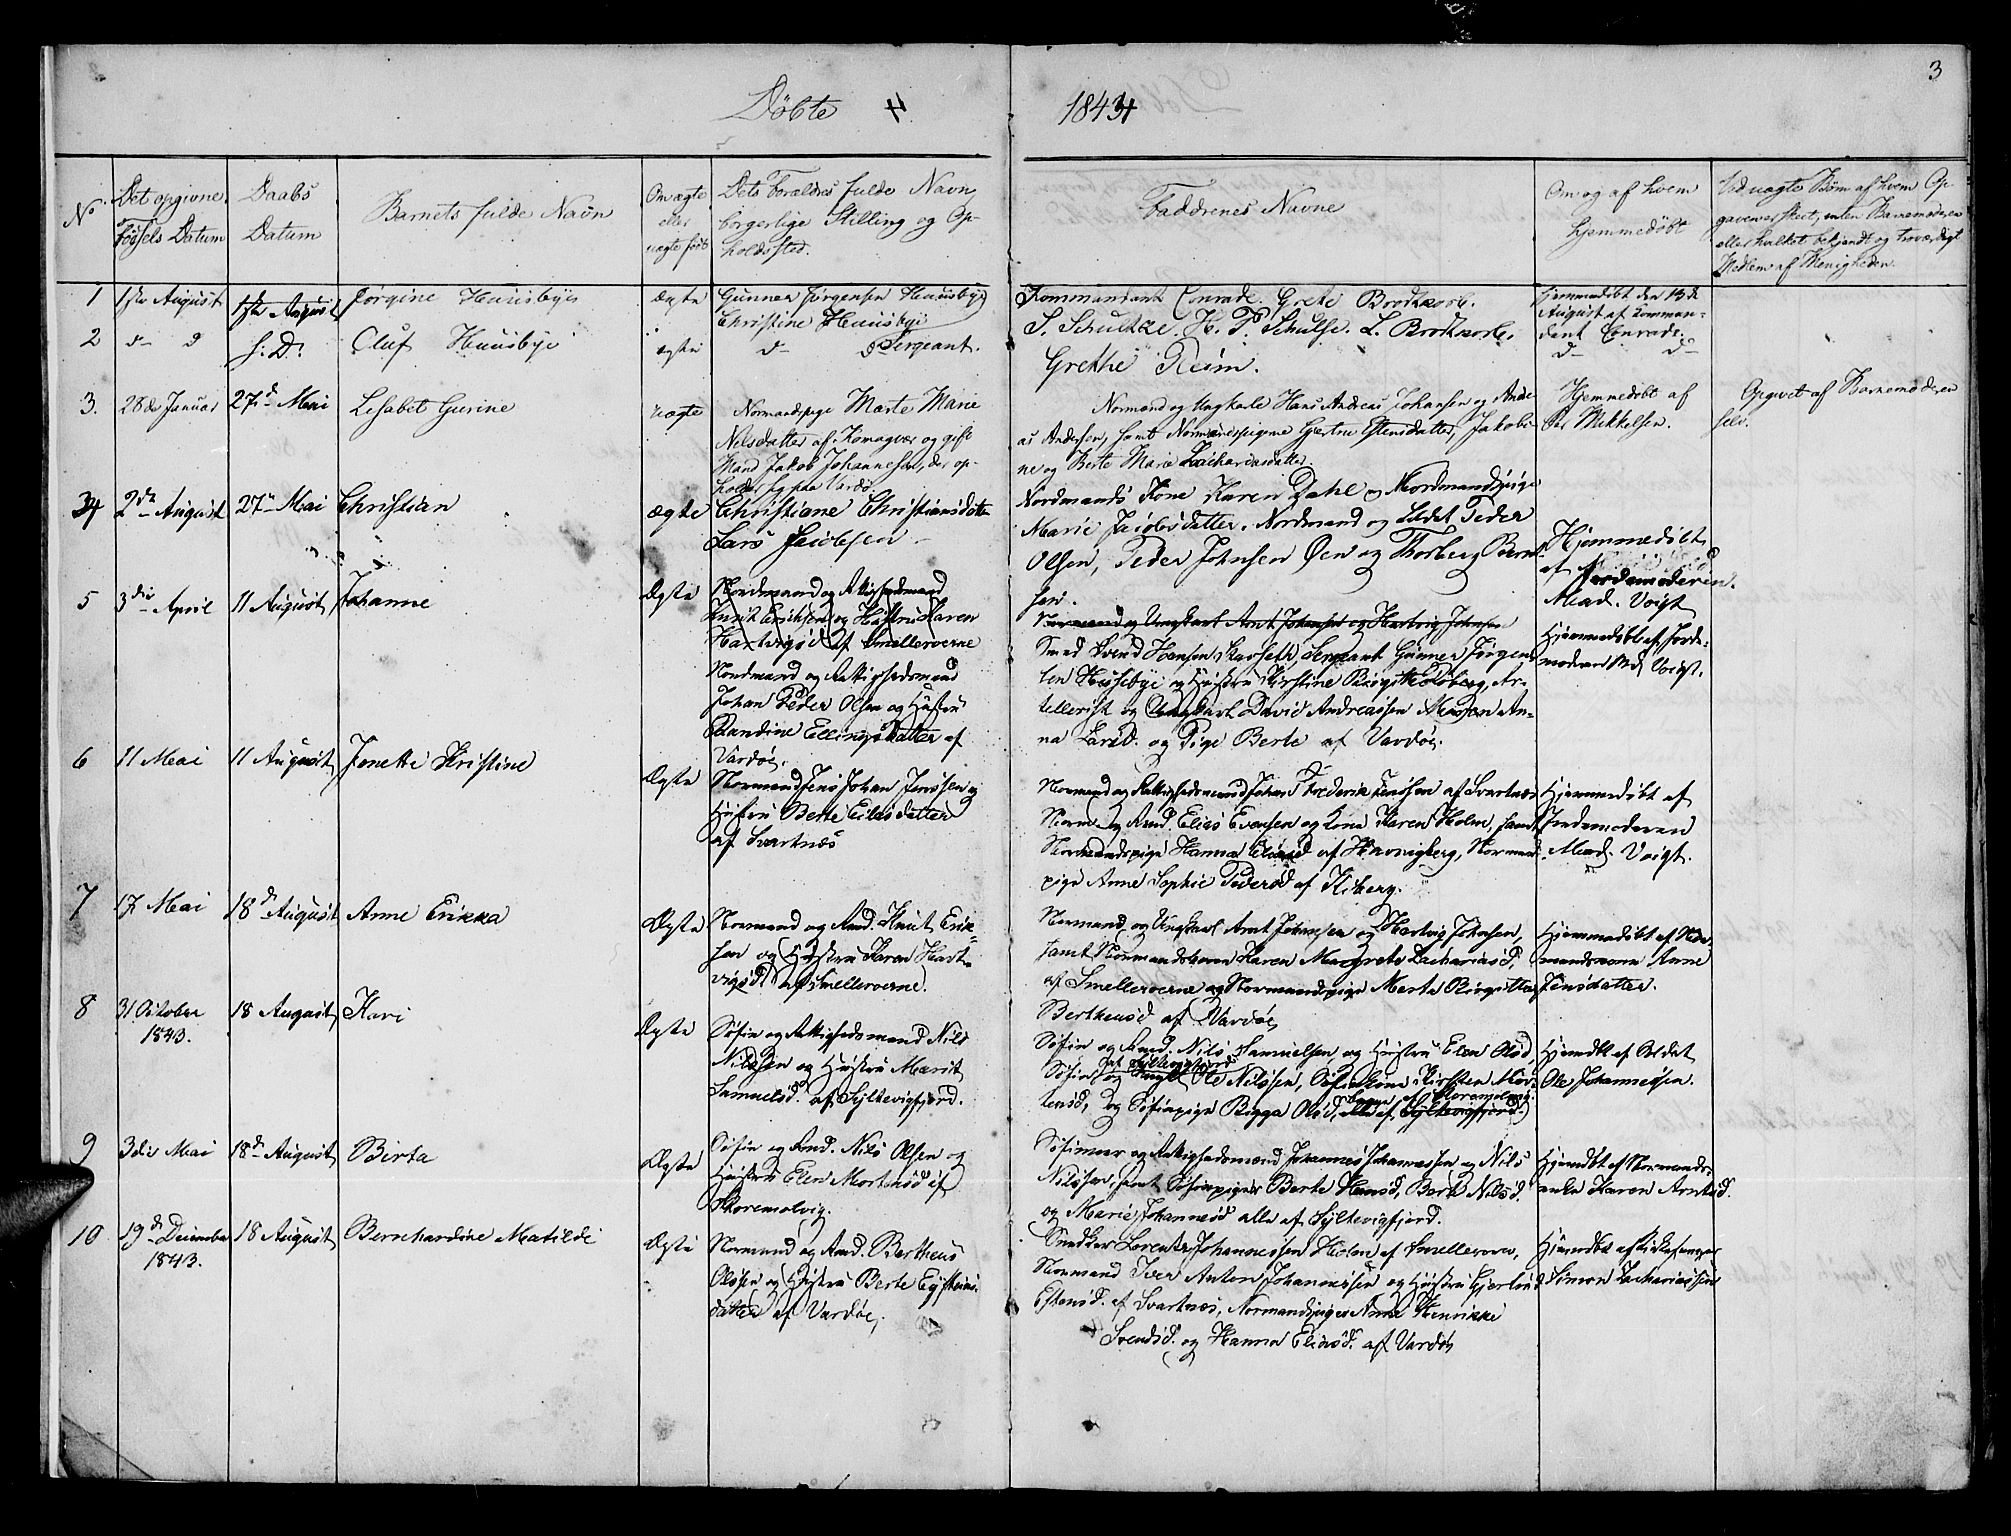 3
Döbte 4 1843 4
No
Det opgivne
Fødsels Datum
Daabs
Datum
Barnets fulde Navn
Om ægte
eller
uægte født
Dets Forældres fulde Navn
borgerlige Stilling og Op-
holdssted.
Faddrenes Navne
Om og af hvem
hjemmedøbt
Ved uægte Børn af hvem Op-
gaven er skeet, enten Barnemoderen
eller hvilket bekjendt og troværdigt
Medlem af Menigheden.
1 1ste August 1ste August Jørgine Huusbye ægte Gunner Jørgensen Huusbye
Christine Huusbye
Kommandant Conrade. Grete Brodtkorb.
S. Schultze. H. P. Schulse. L. Brodtkorb.
Grethe Reim.
Hjemmedøbt den 13de
August af Komman-
dant Conrade.
2 d- d s: D: Oluf Huusbye ægte d- d Sergeant.
d- d-
3. 28de Januar 27d Mai Lisabet Gurine uægte Normandspige Marte Marie
Nilsdatter af Komagvær og gift
Mand Jakob Johannesen, der op-
holder sig paa Vardø
Normand og Ungkarle Hans Andreas Johansen og Ande-
as Andersen, samt Normandspigerne Gjertru Estensdatter, Jakobi-
ne og Berte Marie Zachariasdatter
Hjemmedøbt af
Per Mikkelsen.
Opgivet af Barnemoderen
selv.
4 2de August 27de Mai Christian ægte Christiane Christiansdatter
Lars Jacobsen
Nordmands Kone Karen Dahl og Nordmandspige
Marie Jacobsdatter. Nordmand og Peder
Olsen, Peder Johnsen Øen og Thorberg Bernt-
sen.
Hjemmedøbt
af Jordemoderen.
Mad. Voigt
5 3die April 11 August Johanne Ægte Nordmand og Rettighedsmand
Knut Erichsen og Hustru Karen
Hartvigsd af Smelleroerne
Nordmand og Rettighedsmand
Johan Peder Olsen og Hustru
Randine Ellingsdatter af
Vardøe.
Normand og Ungkarl Arnt Johnsen og Hartvig Johnsen
Smed Svend Hansen Karseth, Sergeant Gunner Jørgen-
sen Husebye og Hustru Kirstine Ar-
tellerist og Ungkarl David Andreassen An-
na Larsd. og Pige Berte af Vardøe.
Hjemmedøbt af Jorde-
moderen Md. Voigt.
6 11 Mai 11 August Jonette Kristine Ægte Normand Jens Johan Jenssen og
Hustru Berte Eilasdatter
af Svartnæs
Normand og Rettighedsmand Johan Frederik Jenssen af Svartnæs
Norm og Rmd. Elias Evensen og Kone Karen Holm, samt
Normandspige Hanna Eliasd af Havnigberg, Normand-
pige Anne Sophie Pedersd af Kiberg.
Hjemmedøbt af
Jordemoderen
Mad. Voigt.
7 17 Mai 18d August Anne Erikka Ægte Normand og Rmd. Knut Erik-
sen og Hustru Karen Hart-
vigsd. af Smelleroerne.
Normand og Ungkarl Arnt Johnsen og Hartvig Johnsen,
samt Normandskonen Karen Margrete Zachariasd,
af Smelleroerne og Normandspige Marta Birgitta
Bertheusd af Vardøe
Hjemmedøbt af Nor-
mandskone Anne
Jensdatter.
8 31 October
1843.
18 August Kari Ægte Søfin og Rettighedsmand Nils
Nilssen og Hustru Marit
Samuelsd. af Syltevigfjord.
Søfin og Rmd. Nils Samuelsen, og Hustru Elen Olsd,
af Syltevigfjord
Søfin og Ungk. Ole Nilssen, Søfinkone Kirsten Mor-
tensd, og Søfinpige Bigga Olsd, alle af Syltevigfjord.
Hjemdbt af Soldat
Ole Johannessen.
9 3die Mai 18d August Birta Ægte Søfin og Rmd. Nils Olsen og
Hustru Elen Mortensd af
Storemolvig.
Søfinner og Rettighedsmænd Johannes Johannessen og Nils
Nilssen, samt Søfinpiger Berte Hansd, Berte Nilsd.
og Marie Johannesd alle af Syltevigfjord.
Hjemdbt af Normands-
enke Karen Arntsd.
10 19d December
1843.
18 August Bernhardine Matilde Ægte Normand og Rmd. Bertheus
Olssen og Hustru Berte Eysteins-
datter af Vardøe.
Snedker Lorents Johannessen Holm af Smelleroren,
Normand Iver Anton Johannessen og Hustru Gjertrud
Estensd. af Svartnæs, Normandspiger Anne Henrikke
Svendsd. og Hanna Eliasd. af Vardøe
Hjemdbt af Kirkesanger
Simon Zachariassen